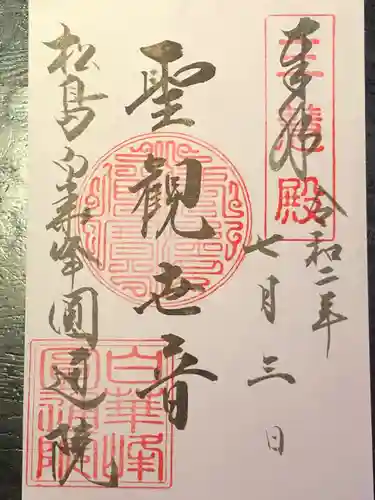 奉拝
令和二年
七月三日
聖観世音
松島白華峰圓通院
白華峰
圓通院